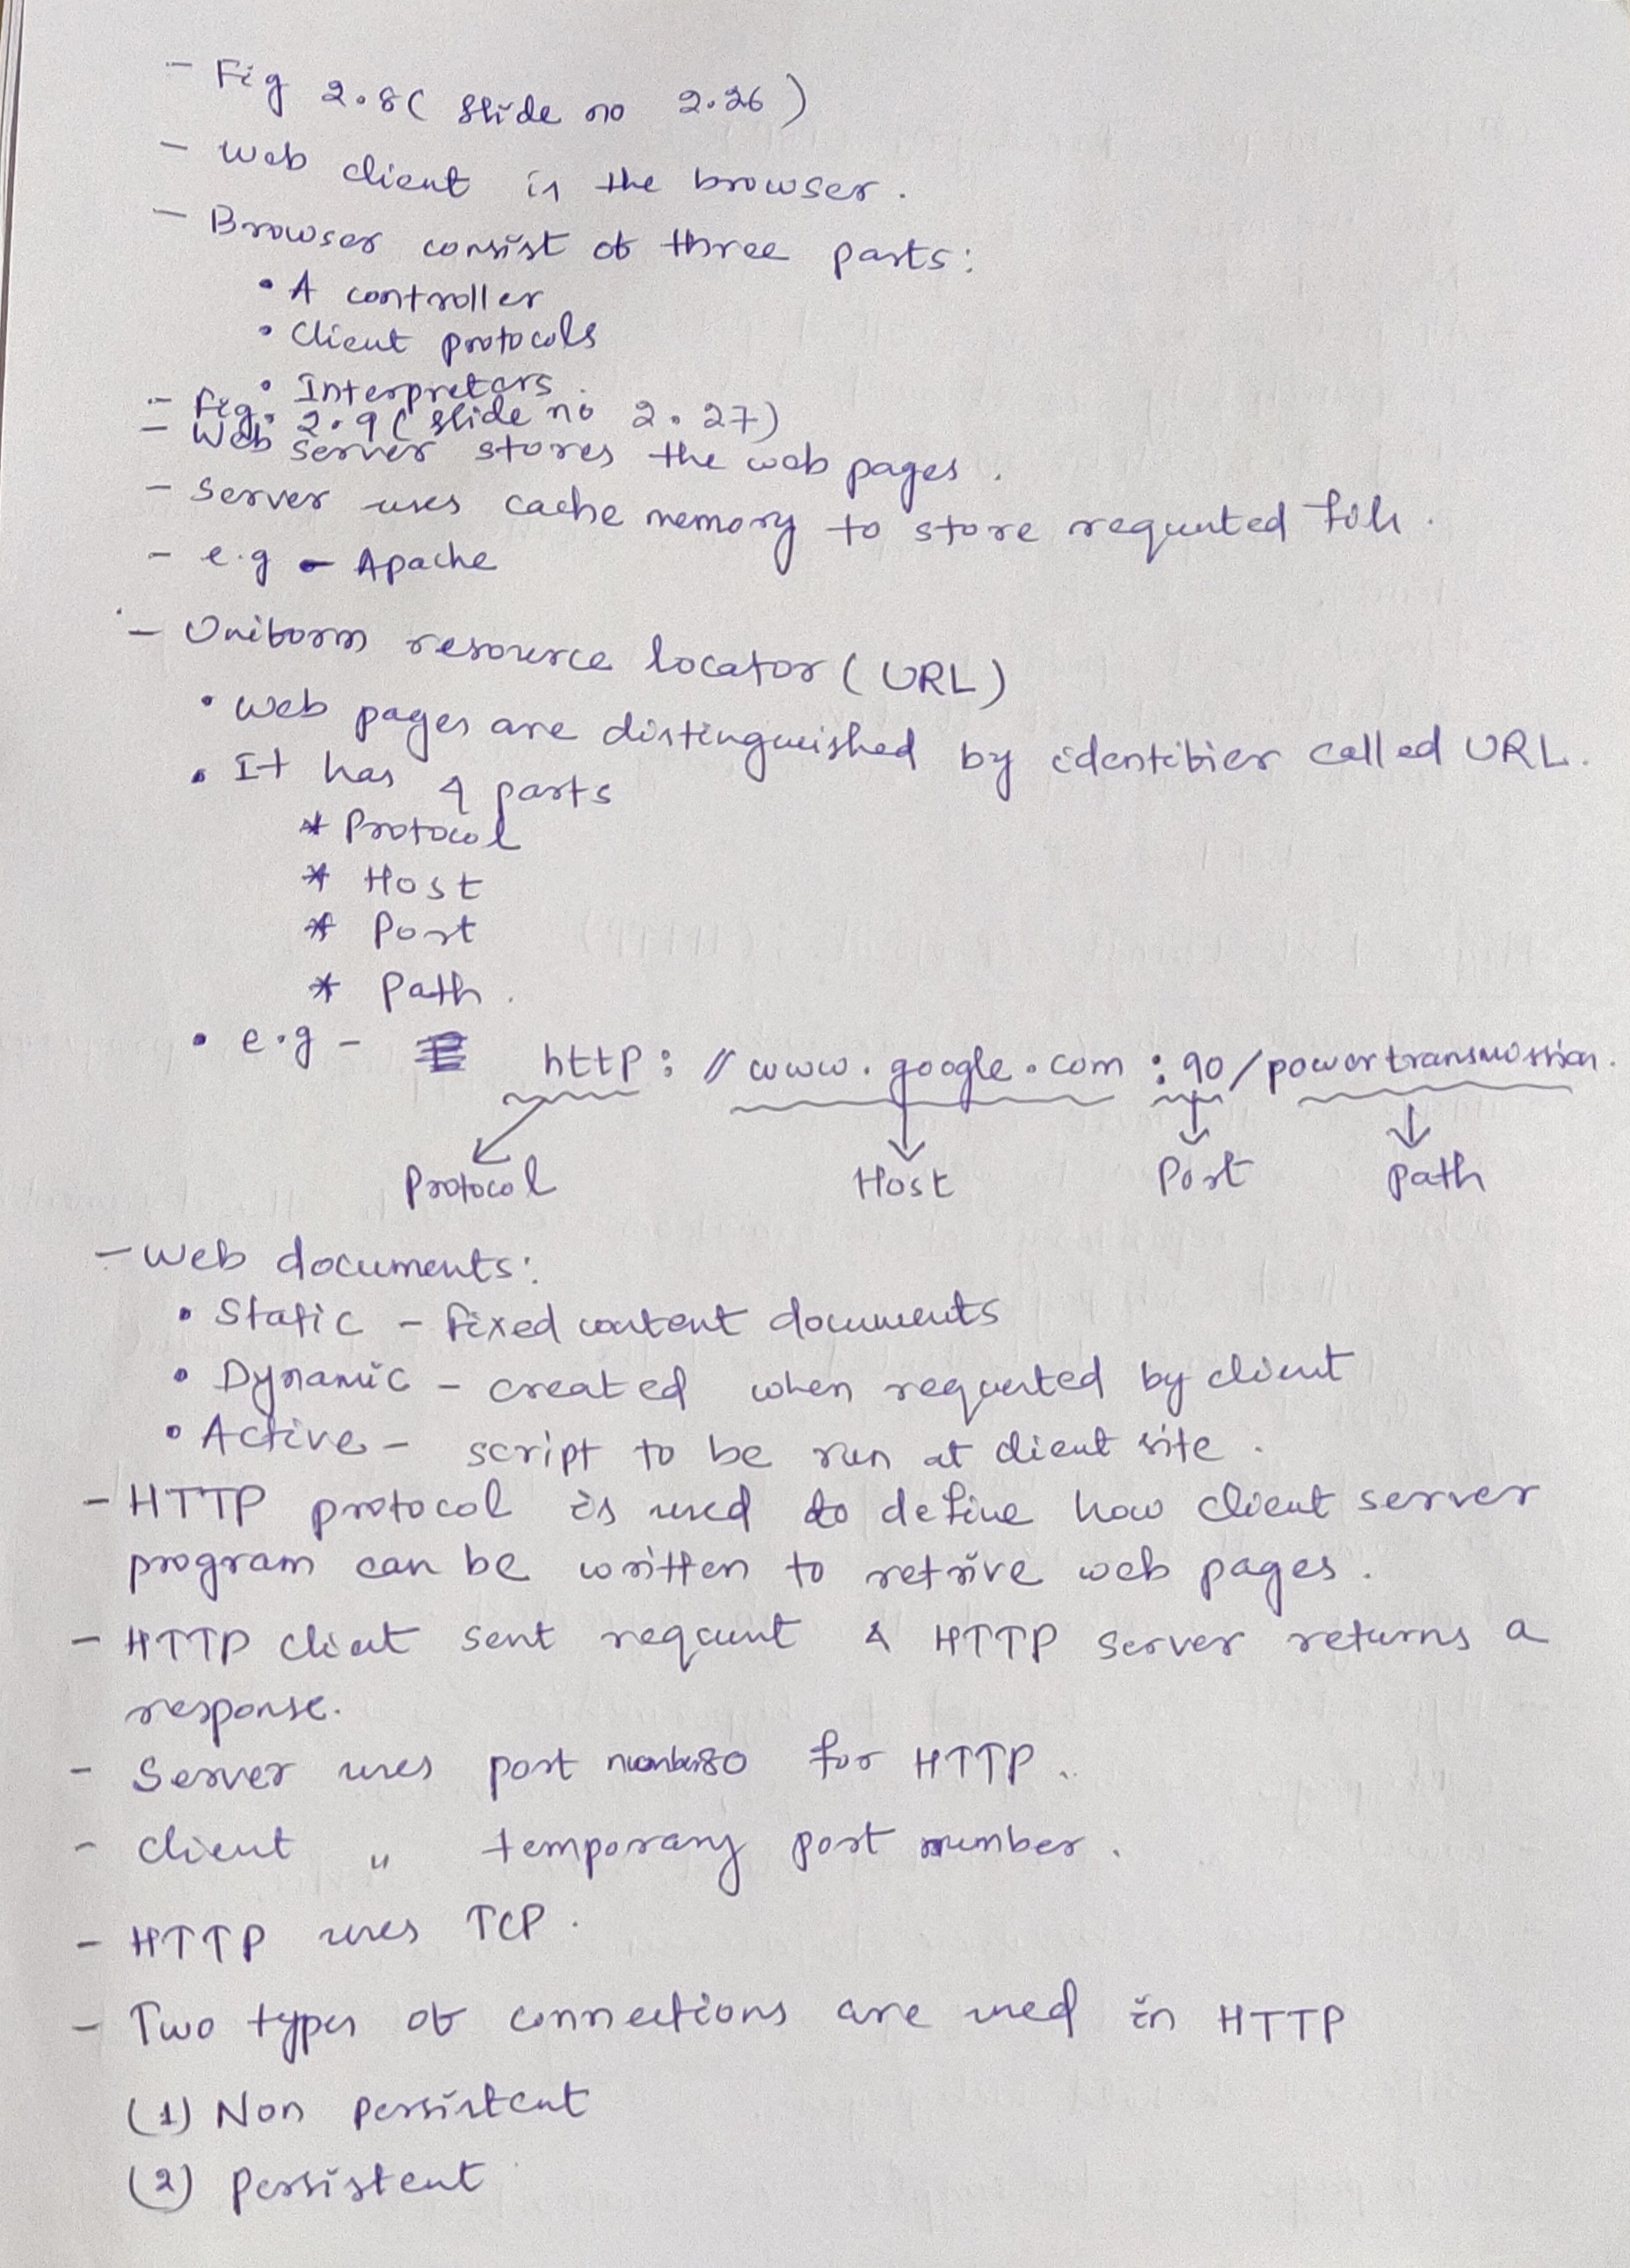 - Fig 2.8 ( slide no 2.26 )
- Web client is the browser.
- Browser consist of three parts:
• A controller
• Client protocols
• Interpreters.
- Fig. 2.9 ( slide no 2.27)
- Web server stores the web pages.
- Server uses cache memory to store requested file.
- e.g - Apache
- Uniform resource locator ( URL )
• Web pages are distinguished by identifier called URL.
• It has 4 parts
* Protocol
* Host
* Port
* Path.
• e.g - http: // www.google.com : 90 / powertransmission.
Protocol Host Port Path
- Web documents:
• Static - fixed content documents
• Dynamic - created when requested by client
• Active - script to be run at client site.
- HTTP protocol is used to define how client server
program can be written to retrive web pages.
- HTTP client sent request & HTTP server returns a
response.
- Server uses port number 80 for HTTP.
- Client " temporary port number.
- HTTP uses TCP.
- Two types of connections are used in HTTP
(1) Non persistent
(2) Persistent